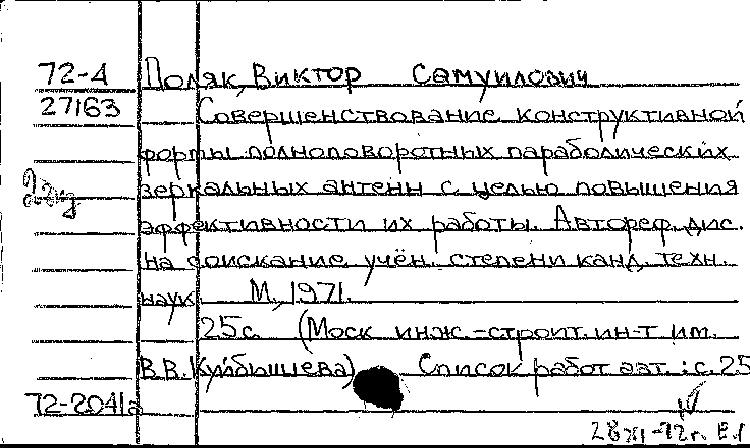 72-4 Поляк, Виктор Самуилович
27163 Совершенствование конструктивной
формы полноповоротных параболических
зеркальных антенн с целью повышения
эффективности их работы. Автореф. дис.
на соискание учён. степени канд. техн.
наук. М., 1971.
25с. (Моск. инж.-строит. ин-т им.
В.В. Куйбышева) Список работ авт.: с. 25
72-2041а
28 XI-72г.